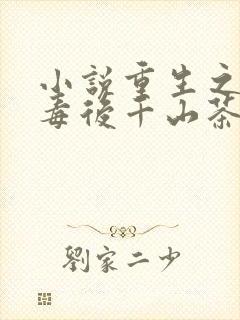 小說重生之
毒後千山茶
劉家二少